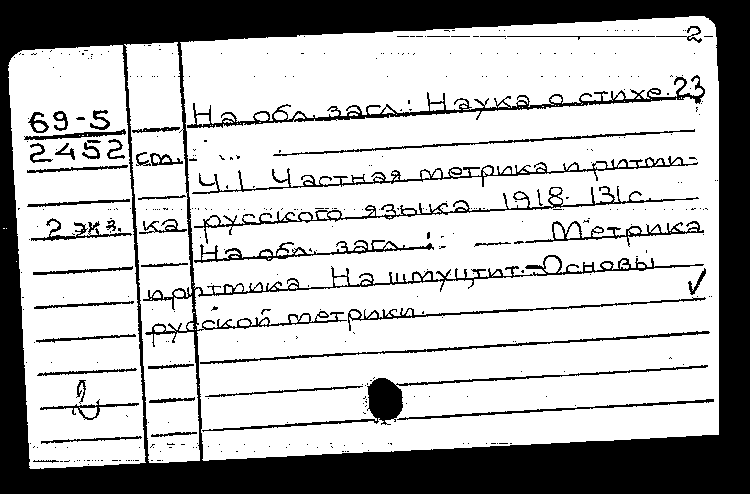 2
69-5 На обл. загл.: Наука о стихе. 23
2452 см. ...
Ч.1. Частная метрика и ритми-
2 экз. ка русского языка. 1918. 131 с.
На обл. загл.: Метрика
и ритмика. На шмуцтит.-Основы
русской метрики.